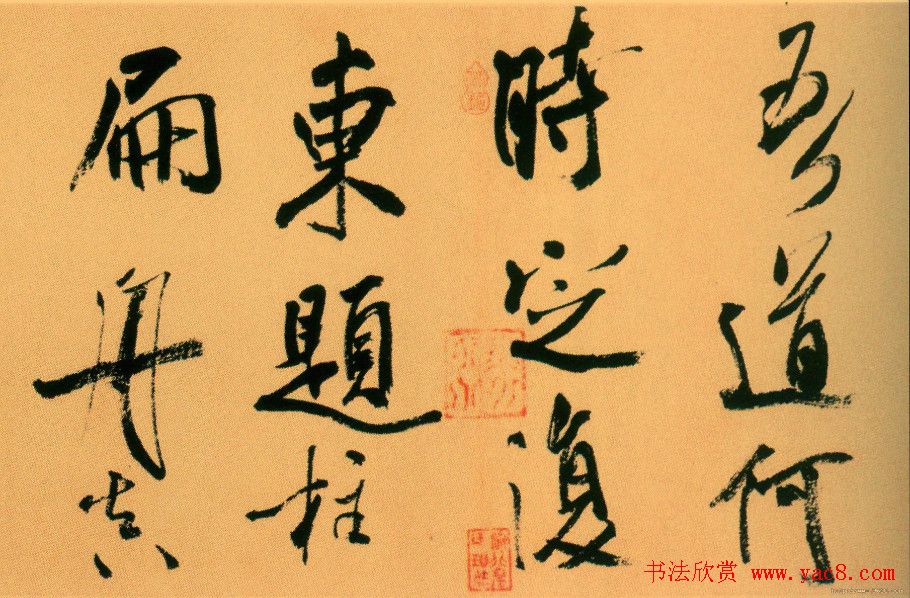 吾道何
時定復
東題柱
扁舟真
书法欣赏 www.yac8.com